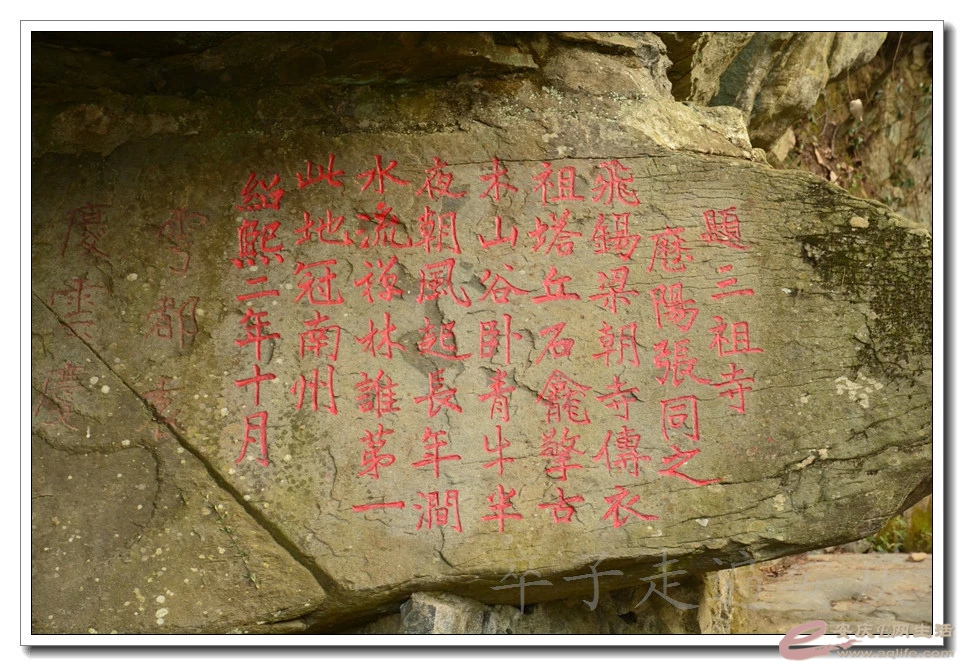 題三祖寺
歷陽張同之
飛錫梁朝寺傳衣
祖塔丘石龕擎古
木山谷卧青牛半
夜朝風起長年澗
水流禅林誰第一
此地冠南州
紹熙二年十月
慶
午子走
www.aqlife.com